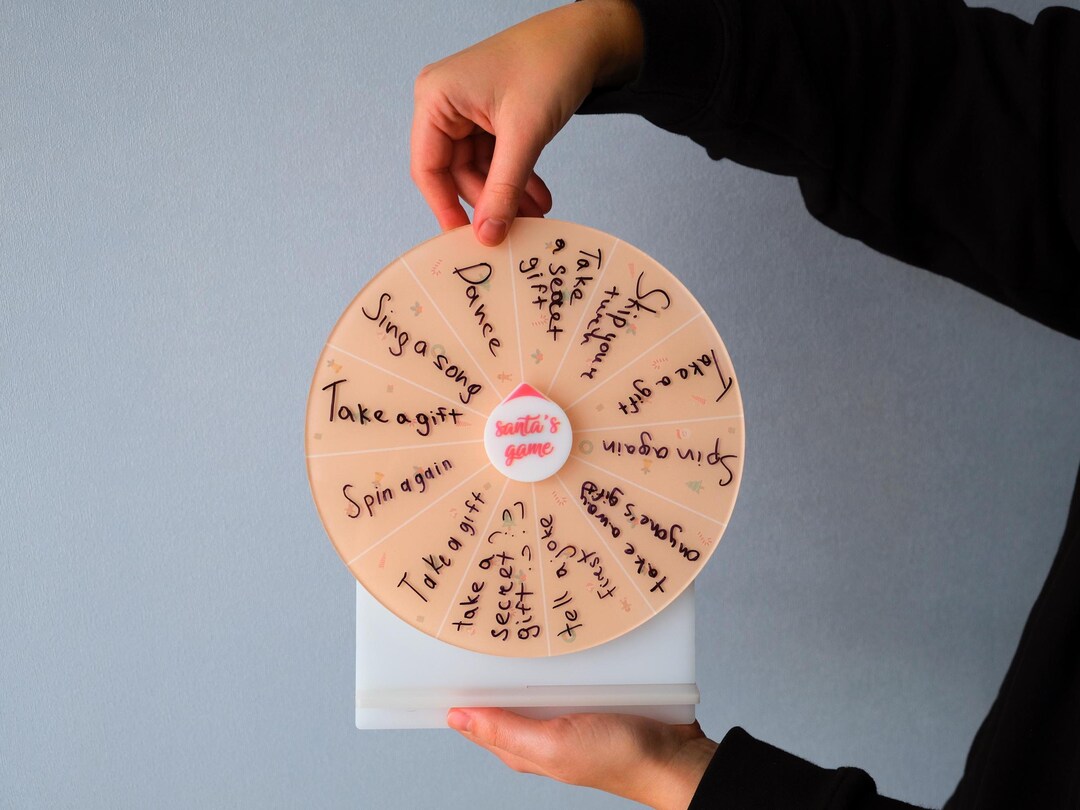 Take
a secret
gift
Skip your
turn
Take a gift
Spin again
take away
anyone's gift
tell a joke
take a
secret
gift
Take a gift
Spin again
Take a gift
Sing a song
Dance
santa's
game